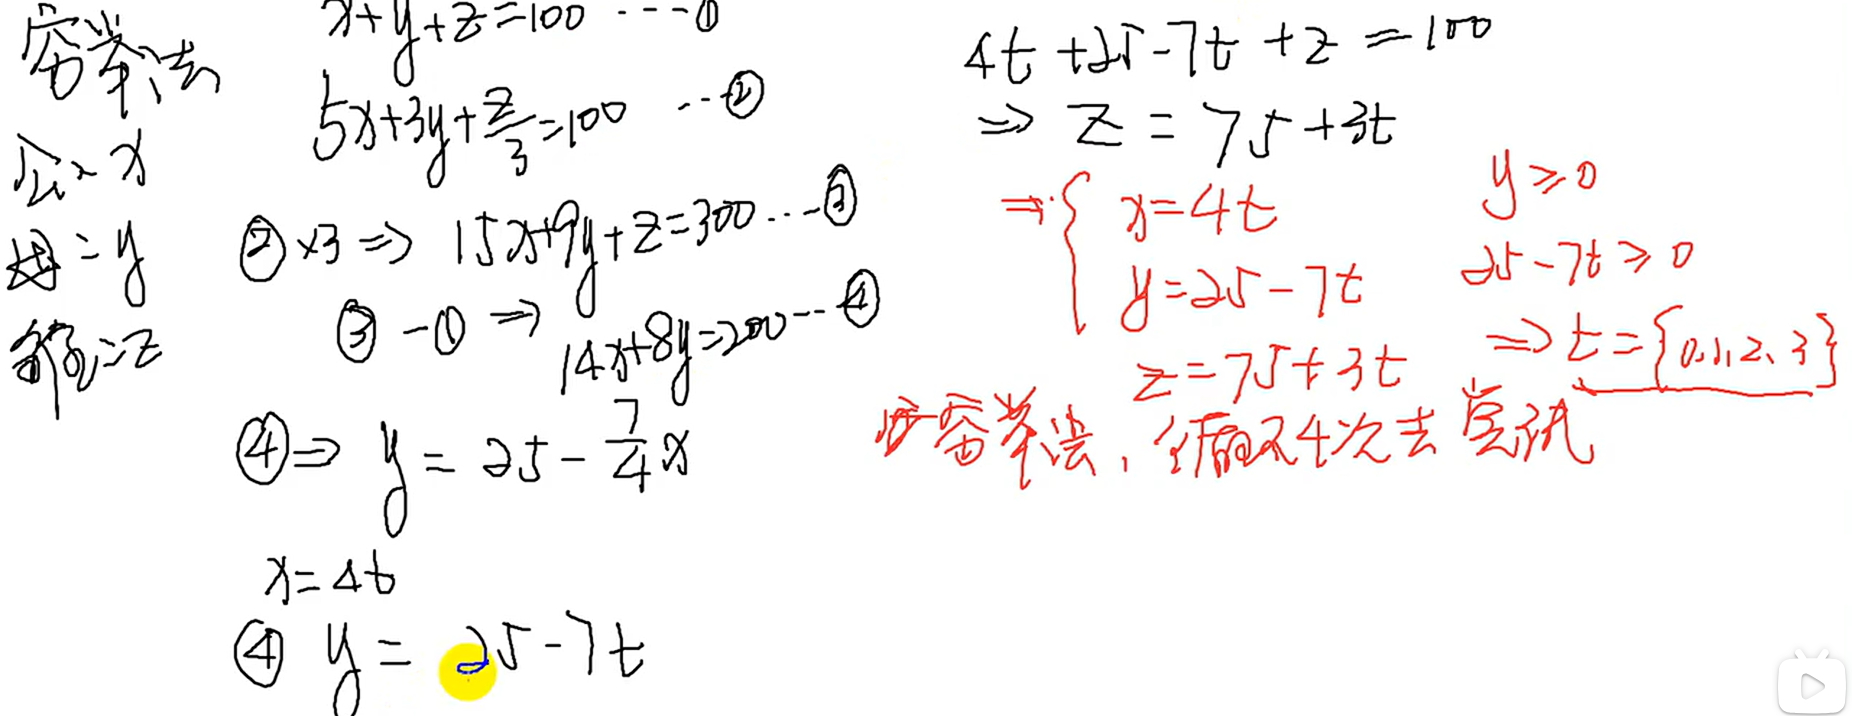 穷举法
公: x
母: y
雏: z
x+y+z=100 ----①
5x+3y+z/3=100 ---②
②×3 ⇒ 15x+9y+z=300 ----③
③-① ⇒ 14x+8y=200 --④
④⇒ y = 25 - 7/4 x
x=4t
④ y = 25-7t
4t+25-7t+z=100
⇒ z = 75+3t
⇒ { x=4t
y=25-7t
z=75+3t
y≥0
25-7t≥0
⇒ t={0,1,2,3}
穷举法, 循环4次去尝试